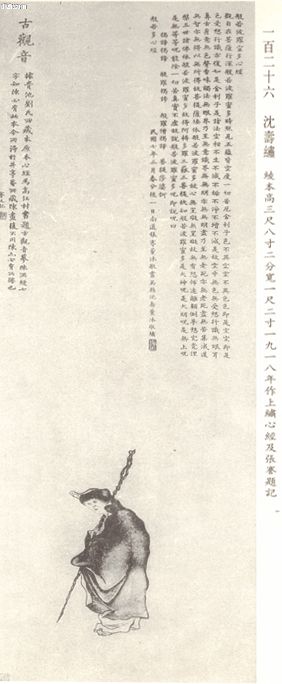 一百二十六 沈壽繡 綾本高三尺八寸二分寬一尺二寸一九一八年作上繡心經及張謇題記
般若波羅蜜多心經
觀自在菩薩行深般若波羅蜜多時照見五蘊皆空度一切苦厄舍利子色不異空空不異色色即是空空即是
色受想行識亦復如是舍利子是諸法空相不生不滅不垢不淨不增不減是故空中無色無受想行識無眼耳
鼻舌身意無色聲香味觸法無眼界乃至無意識界無無明亦無無明盡乃至無老死亦無老死盡無苦集滅道
無智亦無得以無所得故菩提薩埵依般若波羅蜜多故心無罣礙無罣礙故無有恐怖遠離顛倒夢想究竟涅
槃三世諸佛依般若波羅蜜多故得阿耨多羅三藐三菩提故知般若波羅蜜多是大神呪是大明呪是無上呪
是無等等呪能除一切苦真實不虛故說般若波羅蜜多呪即說呪曰
揭諦揭諦 般羅揭諦 般羅僧揭諦 菩提莎婆訶
般若多心經
民國七年三月春分後一日南通張謇薰沐敬書吳縣沈壽薰沐敬繡
古觀音
據貴池劉氏 藏 本心經為高江村書題古觀音摹陳洪綬